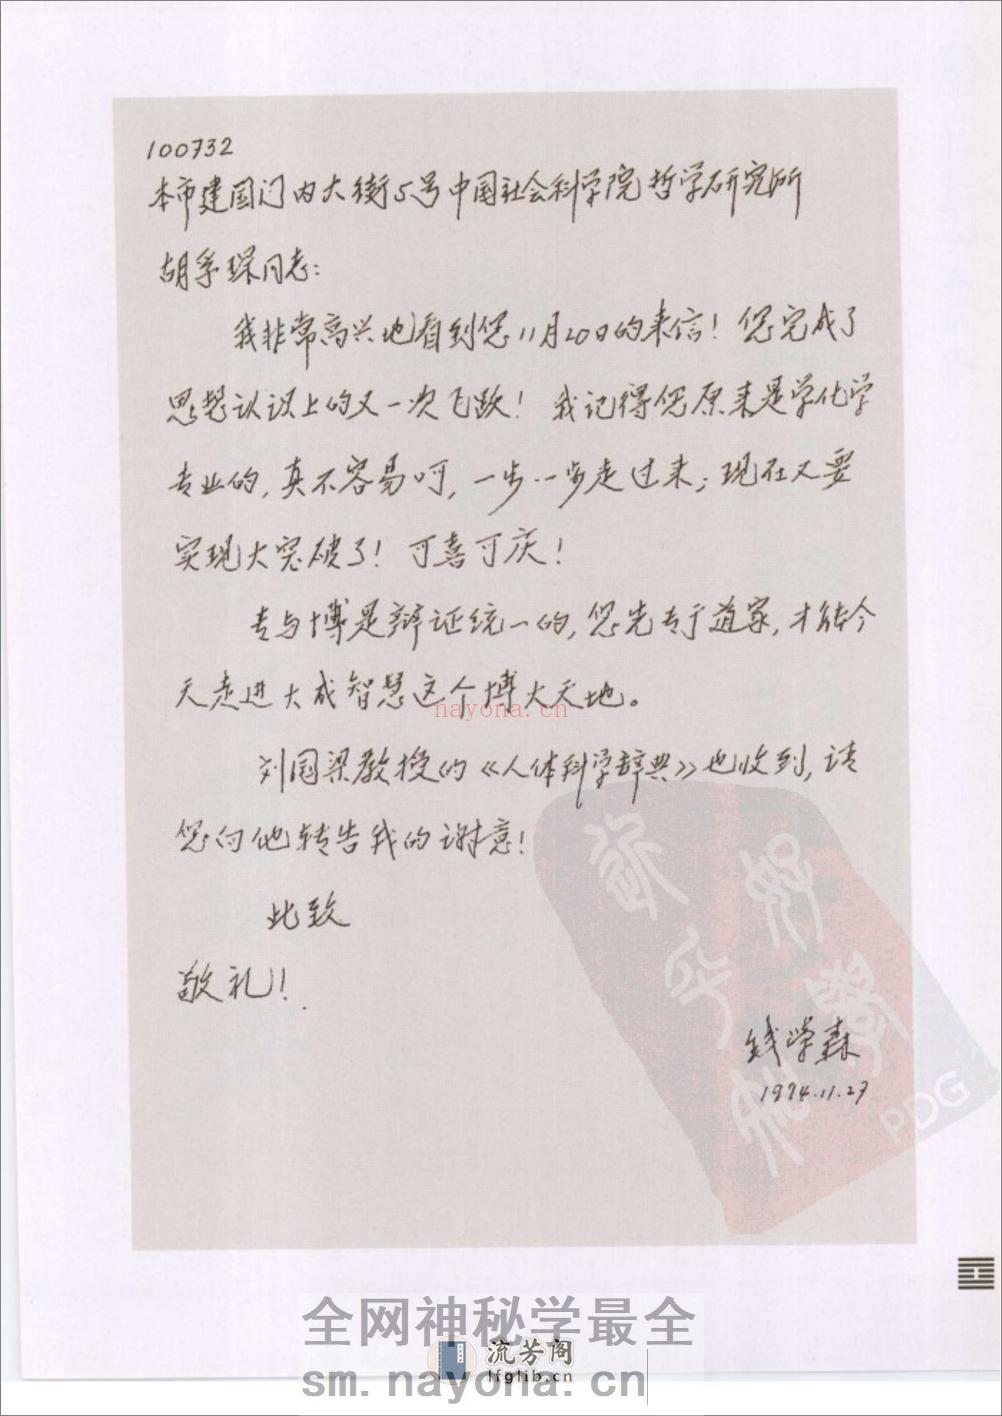 100732
本市建国门内大街5号中国社会科学院哲学研究所
胡孚琛同志：
我非常高兴地看到您11月20日的来信！您完成了
思想认识上的又一次飞跃！我记得您原来是学化学
专业的，真不容易呵，一步一步走过来；现在又要
实现大突破了！可喜可庆！
专与博是辩证统一的，您先专于道家，才能今
天走进大成智慧这个博大天地。
nayona.cn
刘国梁教授的《人体科学辞典》也收到，请
您向他转告我的谢意！
此致
敬礼！
钱学森
1994.11.27
PDG
全网神秘学最全
流芳阁
lfglib.cn
sm.nayona.cn